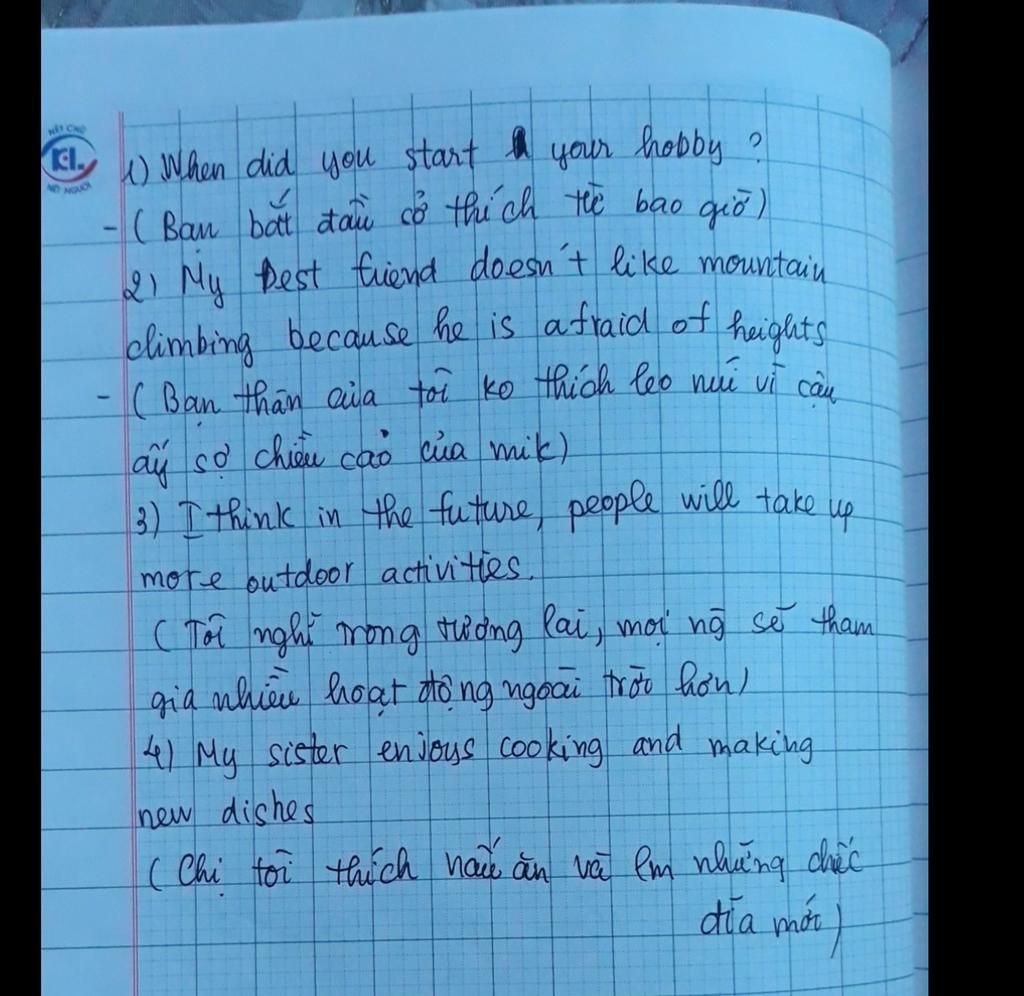 NÉT CHỮ
KL.
NẾT NGƯỜI
1) When did you start your hobby ?
- ( Bạn bắt đầu sở thích từ bao giờ)
2) My best friend doesn't like mountain
climbing because he is afraid of heights
- ( Bạn thân của tôi ko thích leo núi vì cậu
ấy sợ chiều cao của mik)
3) I think in the future, people will take up
more outdoor activities.
( Tôi nghĩ trong tương lai, mọi ng sẽ tham
gia nhiều hoạt động ngoài trời hơn)
4) My sister enjoys cooking and making
new dishes
( Chị tôi thích nấu ăn và lm những chiếc
đĩa mới)